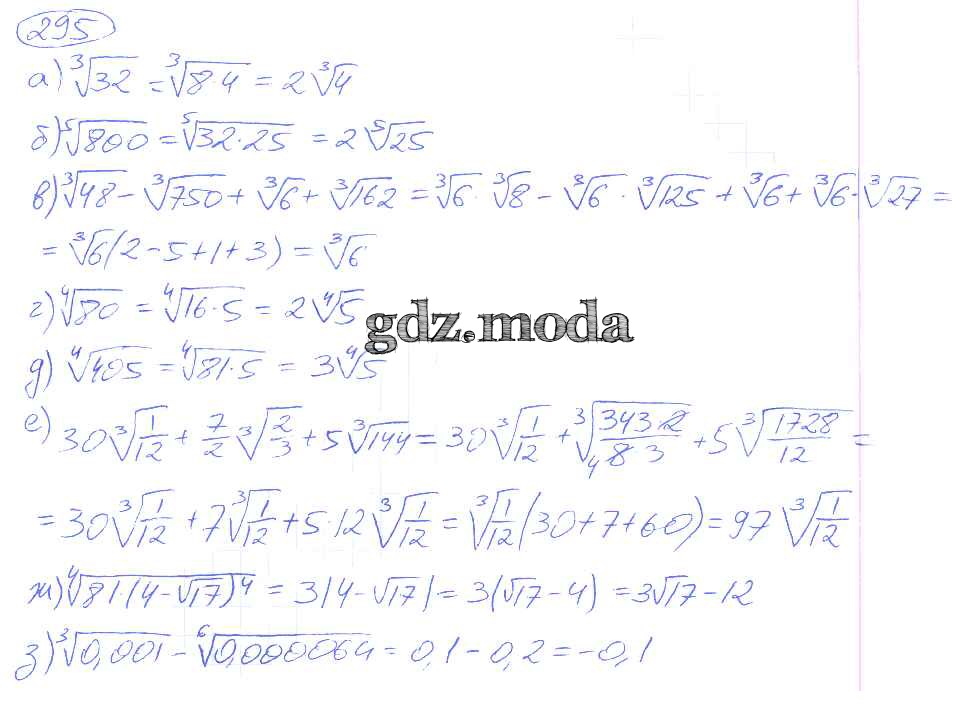 295
а) ∛32 = ∛(8·4) = 2∛4
б) ⁵√800 = ⁵√(32·25) = 2 ⁵√25
в) ∛48 - ∛750 + ∛6 + ∛162 = ∛6 · ∛8 - ∛6 · ∛125 + ∛6 + ∛6 · ∛27 =
= ∛6(2-5+1+3) = ∛6
г) ∜80 = ∜(16·5) = 2∜5
gdz.moda
д) ∜405 = ∜(81·5) = 3∜5
е) 30∛(1/12) + 7/2 ∛(2/3) + 5∛144 = 30∛(1/12) + ∛((343·2)/(8·3)) 4 + 5∛(1728/12) =
= 30∛(1/12) + 7∛(1/12) + 5·12∛(1/12) = ∛(1/12)(30+7+60) = 97∛(1/12)
ж) ∜(81·(4-√17)⁴) = 3|4-√17| = 3(√17-4) = 3√17-12
з) ∛0,001 - ⁶√0,000064 = 0,1-0,2 = -0,1